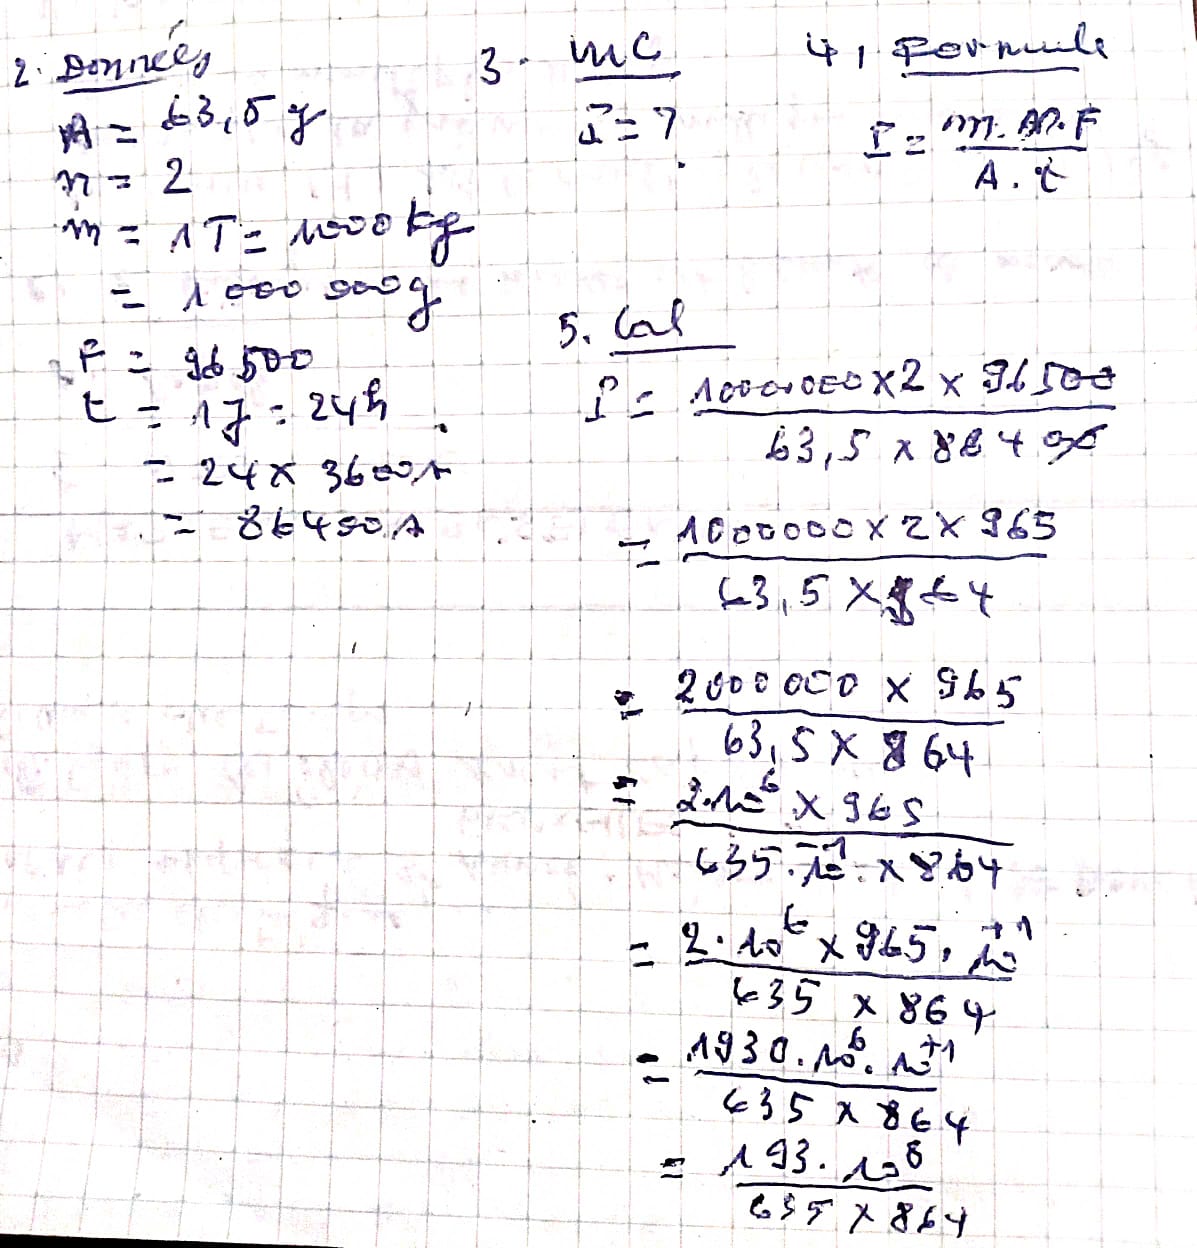 2. Données
A = 63,5 g
n = 2
m = 1T = 1000 kg
= 1 000 000g
F = 96 500
t = 1j = 24h
= 24 x 3600s
= 86400s
3. MC
I = ?
4, Formule
I = m. n. F
A. t
5. Cal
I = 1000 000 x 2 x 96500
63,5 x 86400
= 1000000 x 2 x 965
63,5 x 864
= 2000 000 x 965
63,5 x 864
= 2.10⁶ x 965
635.10⁻¹ x 864
= 2.10⁶ x 965.10⁺¹
635 x 864
= 1930.10⁶.10⁺¹
635 x 864
= 193.10⁸
635 x 864